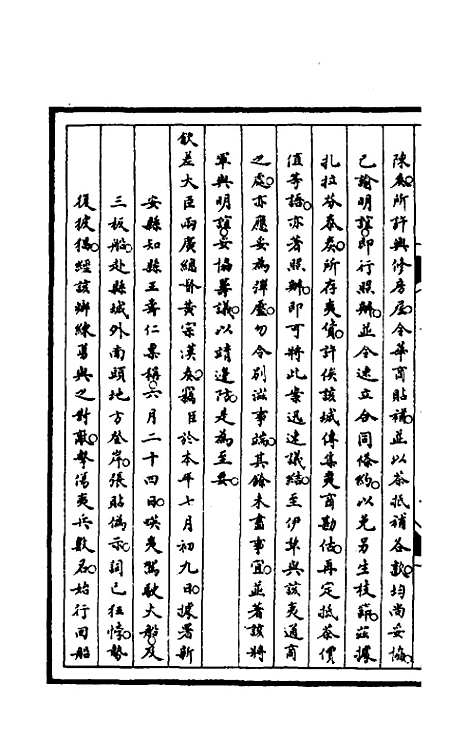 陳奏所許興修房屋令華商貼補並以茶抵補各款均尚妥協
已諭明誼即行照辦並令速立合同條約以免另生枝節茲據
扎拉芬泰奏所存夷貨許俟該城傳集夷商勘估再定抵茶價
值等語亦著照辦即可將此案迅速議結至伊犂與該夷通商
之處亦應妥為彈壓勿令別滋事端其餘未盡事宜並著該將
軍與明誼妥協籌議以靖邊陲是為至要
欽差大臣兩廣總督黃宗漢奏竊臣於本年七月初九日據署新
安縣知縣王壽仁稟稱六月二十四日暎夷駕駛大船及
三板船赴縣城外南頭地方登岸張貼偽示詞已狂悖勢
復披猖經該鄉練勇與之對敵擊傷夷兵數名始行回船